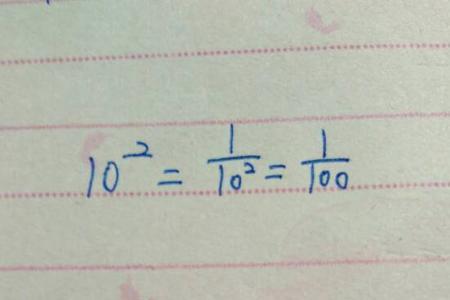 10⁻² = 1/10² = 1/100